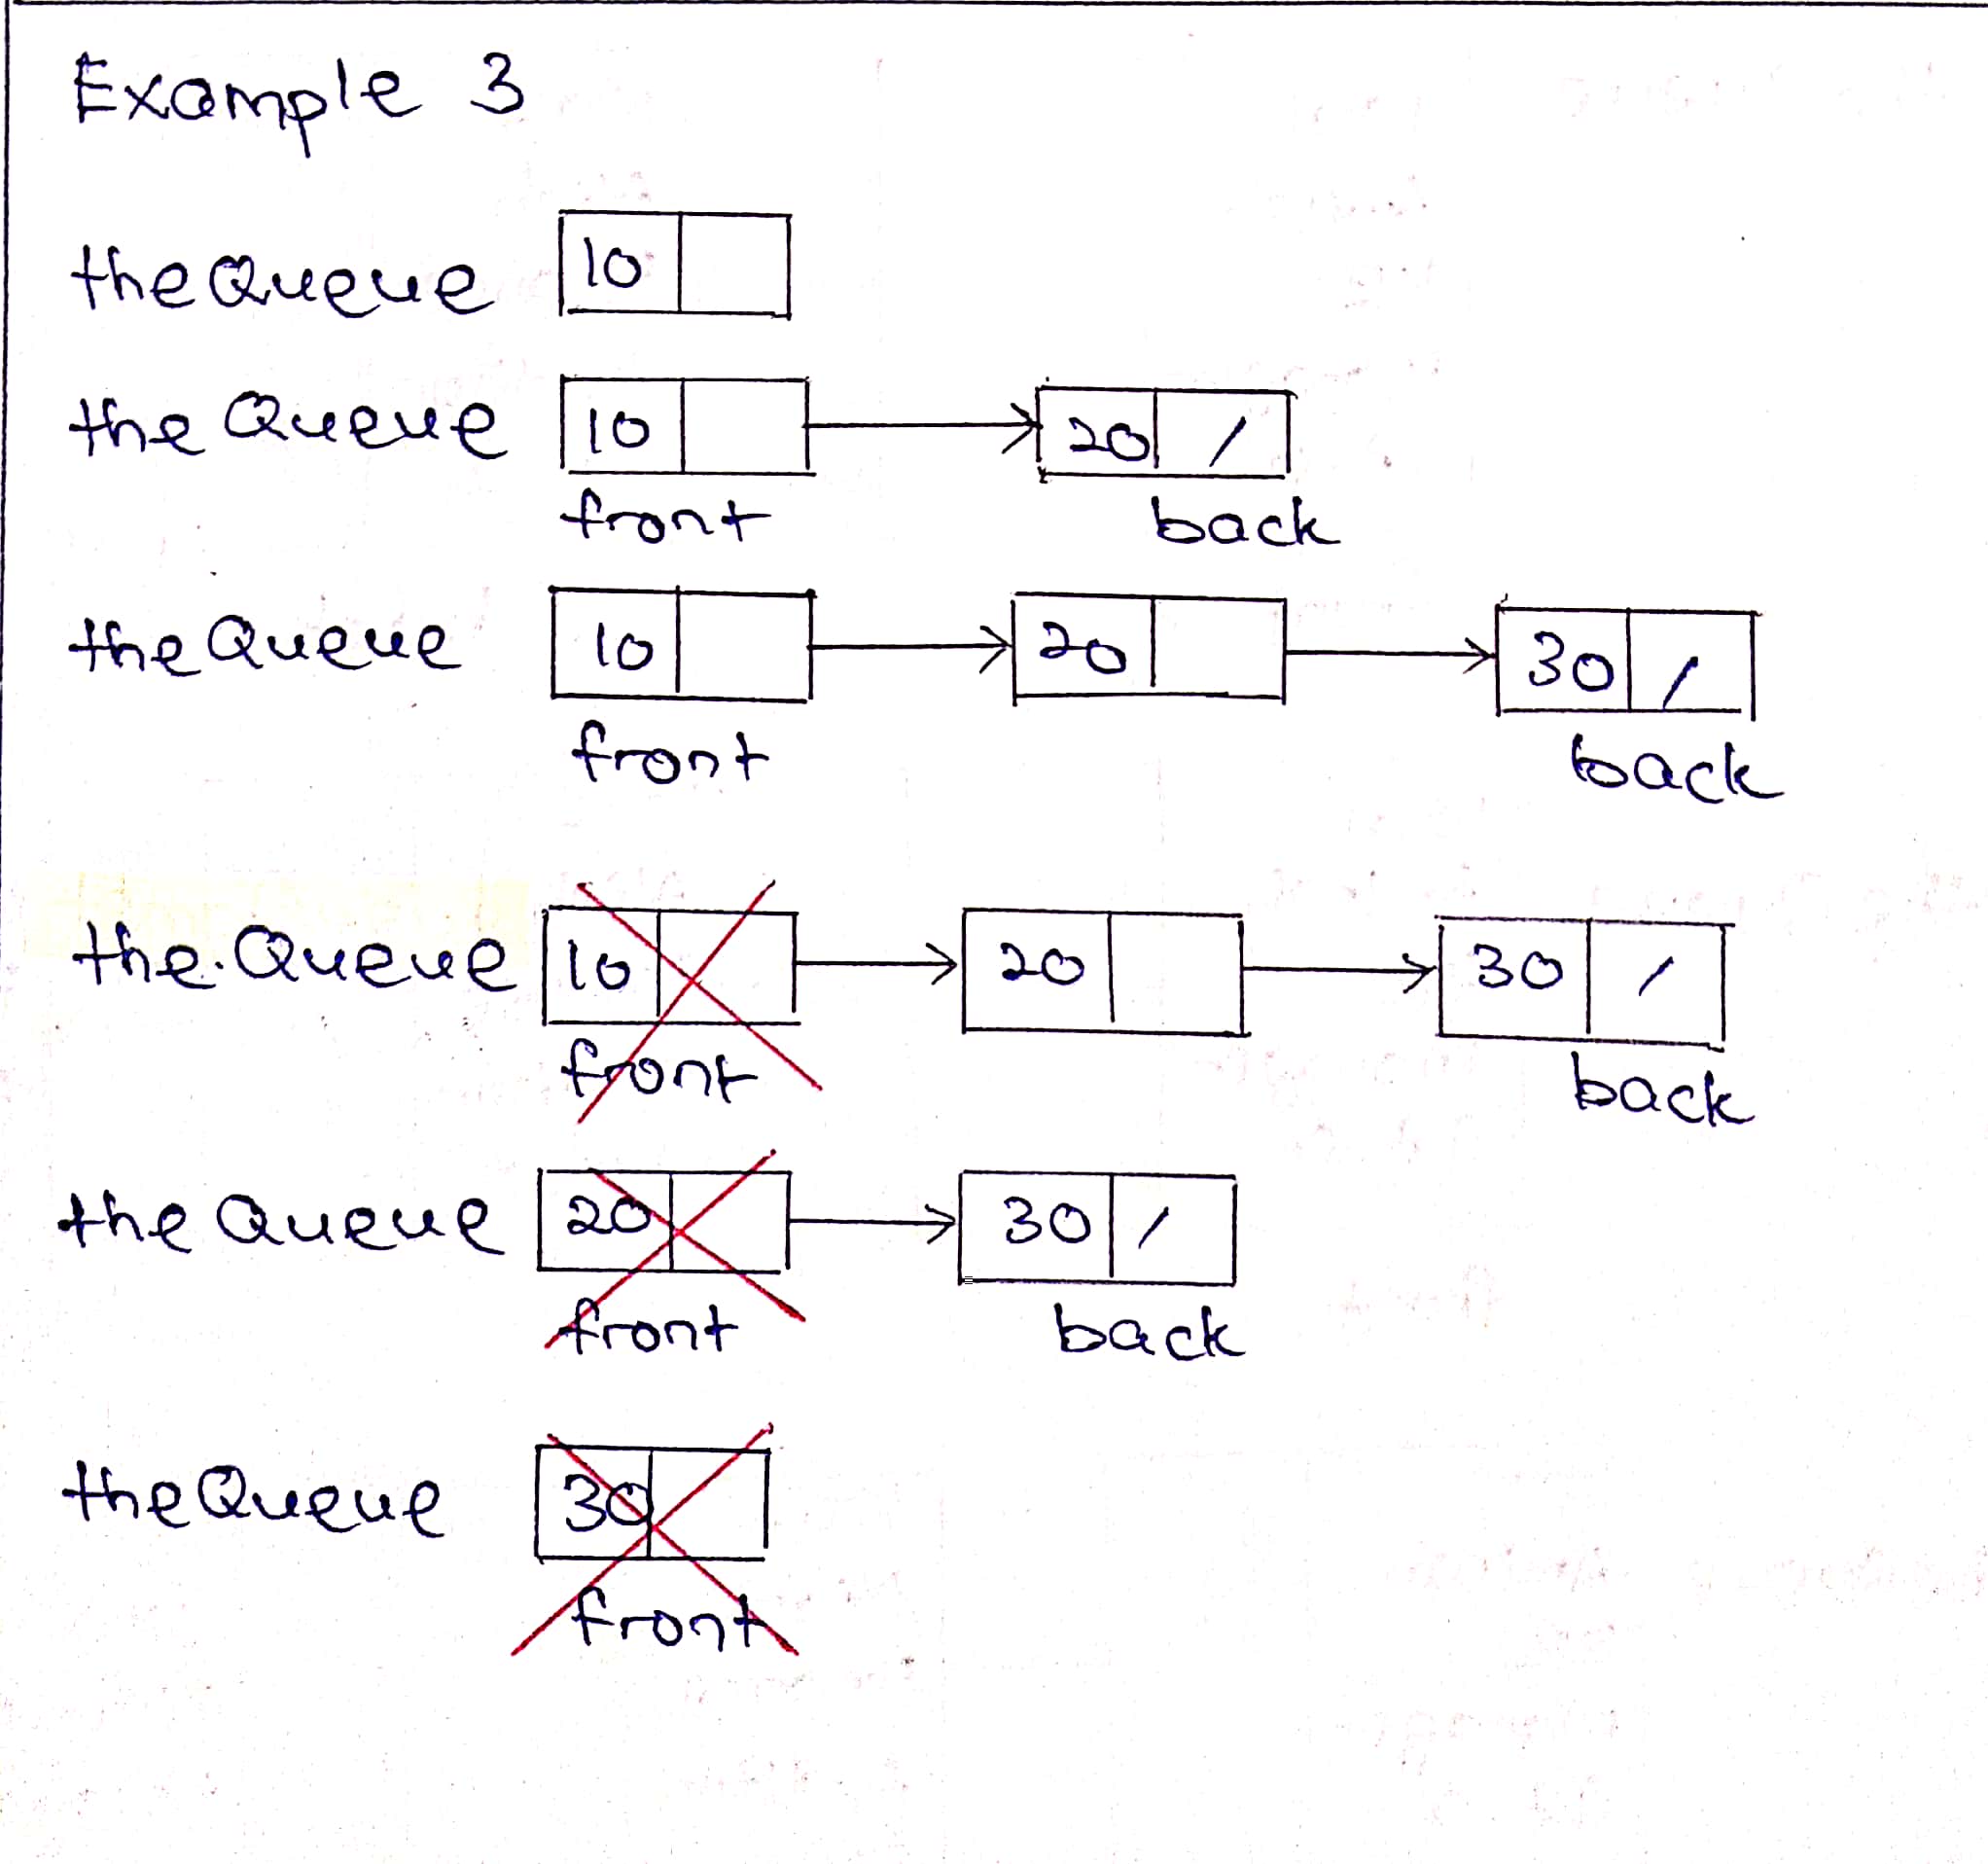 Example 3
theQueue 10
the Queue 10 20 /
front back
theQueue 10 20 30 /
front back
the.Queue 10 20 30 /
front back
the Queue 20 30 /
front back
theQueue 30
front